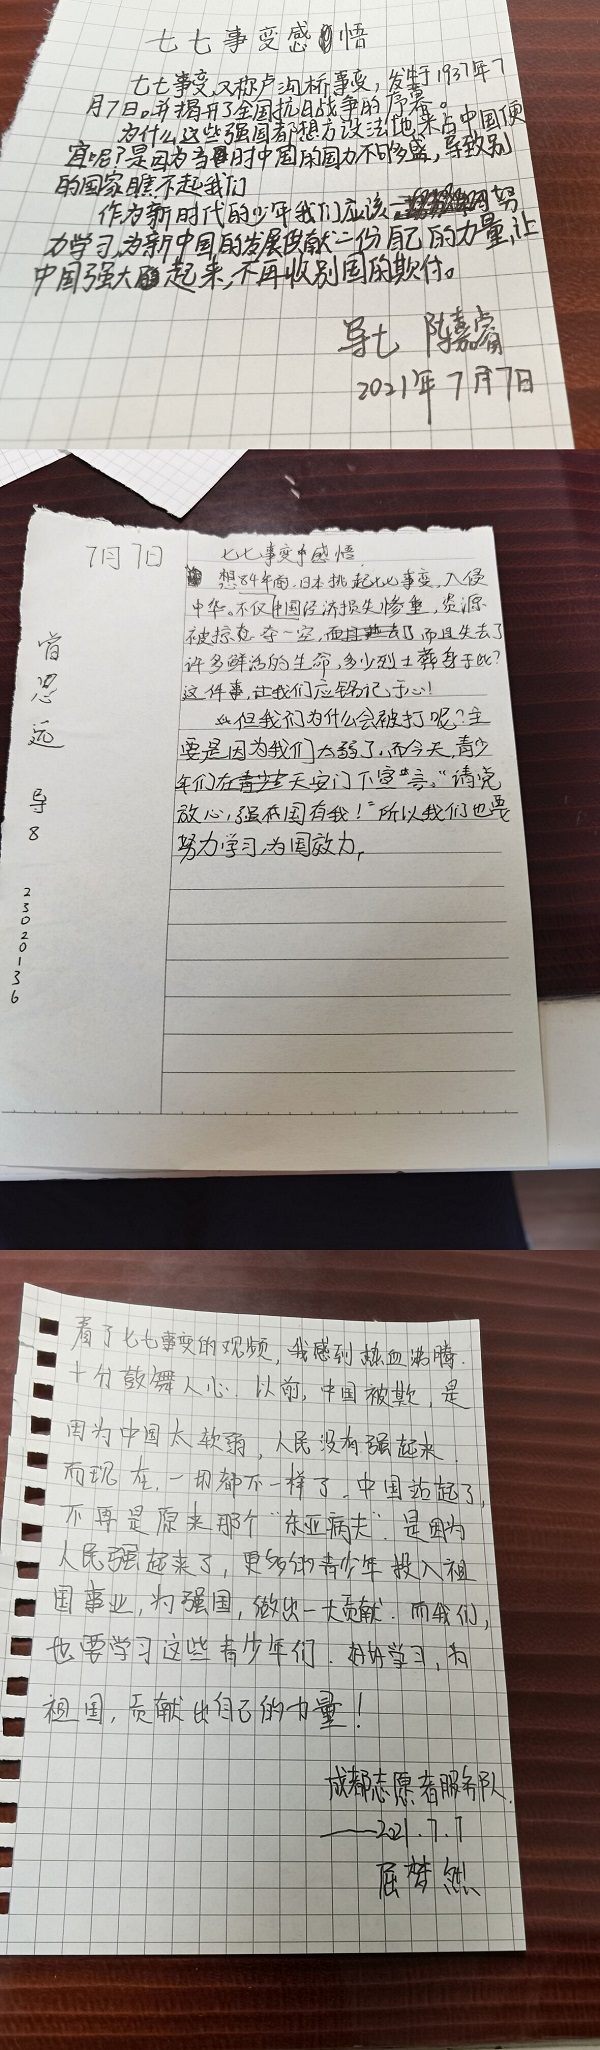 七七事变感悟
七七事变,又称卢沟桥事变,发生于1937年7
月7日。并揭开了全国抗日战争的序幕。
为什么这些强国都想方设法地来占中国便
宜呢?是因为当时中国的国力不够多盛,导致别
的国家瞧不起我们
作为新时代的少年我们应该努
力学习,为新中国的发展贡献一份自己的力量,让
中国强大起来,不再收别国的欺付。
导七 陈嘉睿
2021年7月7日
7月7日
七七事变中感悟
想84年前,日本挑起七七事变,入侵
中华。不仅中国经济损失惨重,资源
被掠夺一空,而且失去了
许多鲜活的生命,多少烈士葬身于此?
这件事,让我们应铭记于心!
但我们为什么会被打呢?主
要是因为我们太弱了,而今天,青少
年们在天安门下宣言。“请党
放心,强国有我!”所以我们也要
努力学习,为国效力,
思远
导8
23020136
看了七七事变的观频,我感到热血沸腾.
十分鼓舞人心.以前,中国被欺,是
因为中国太软弱,人民没有强起来.
而现在,一切都不一样了.中国站起了,
不再是原来那个“东亚病夫”.是因为
人民强起来了,更多的青少年投入祖
国事业,为强国,做出一大贡献.而我们,
也要学习这些青少年们.好好学习,为
祖国,贡献出自己的力量!
成都志愿者服务队.
——2021.7.7
屈梦然